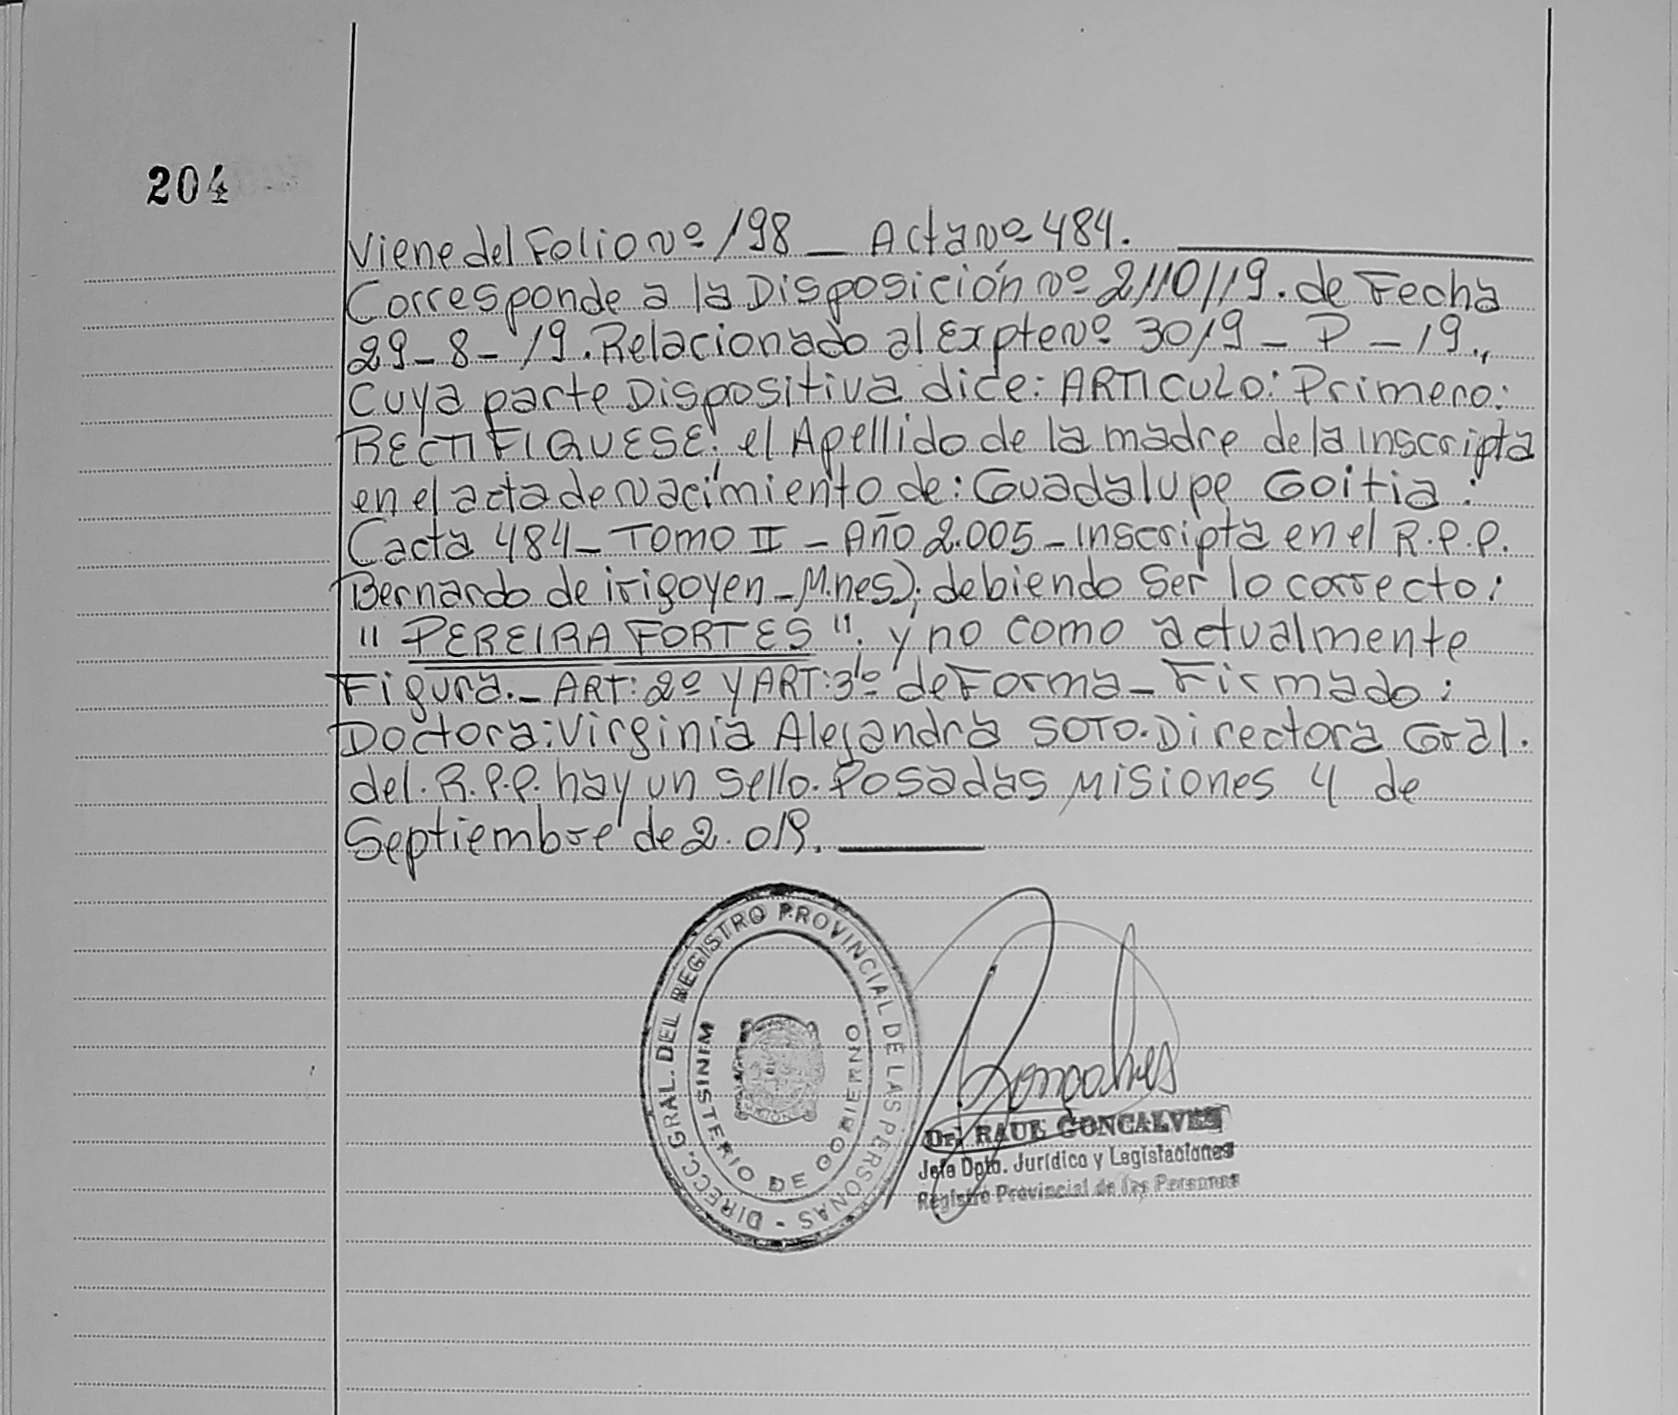 204
Viene del Folio Nº 198 _ Acta Nº 484.
Corresponde a la Disposición Nº 2110/19. de Fecha
29-8-19. Relacionado al Expte Nº 3019 - P - 19.,
Cuya parte Dispositiva dice: ARTICULO: Primero:
RECTIFIQUESE; el Apellido de la madre de la inscripta
en el acta de Nacimiento de: Guadalupe Goitia:
(acta 484 - Tomo II - Año 2.005 - inscripta en el R.P.P.
Bernardo de irigoyen - M.nes); debiendo Ser lo correcto:
"PEREIRA FORTES"; y no como actualmente
Figura._ ART: 2º Y ART: 3º de Forma - Firmado:
Doctora: Virginia Alejandra SOTO. Directora Gral.
del. R.P.P. hay un Sello. Posadas Misiones 4 de
Septiembre de 2.019.
DIRECC. GRAL. DEL REGISTRO PROVINCIAL DE LAS PERSONAS -
MINISTERIO DE GOBIERNO
Goncalves
Dr. RAUL GONCALVES
Jefe Dpto. Jurídico y Legislaciones
Registro Provincial de las Personas